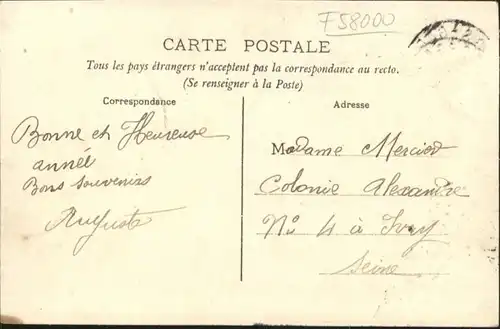 F58000
CARTE POSTALE
Tous les pays étrangers n'acceptent pas la correspondance au recto.
(Se renseigner à la Poste)
Correspondance
Adresse
Bonne et Heureuse
année
Bons souvenirs
Auguste
Madame Merciot
Colonie Alexandre
No 4 à Ivry
Seine